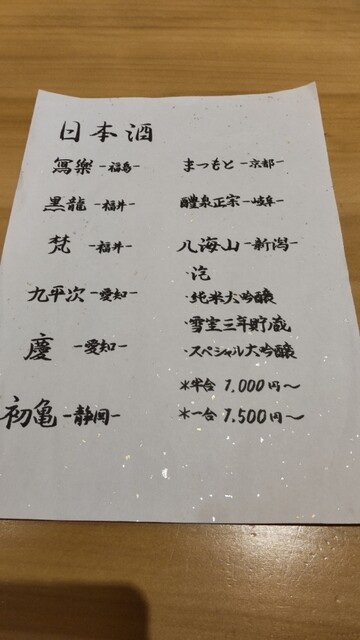 日本酒
冩樂 -福島-
黒龍 -福井-
梵 -福井-
九平次 -愛知-
慶 -愛知-
初亀 -静岡-
まつもと -京都-
醴泉正宗 -岐阜-
八海山 -新潟-
・泡
・純米大吟醸
・雪室三年貯蔵
・スペシャル大吟醸
*半合 1,000円〜
*一合 1,500円〜